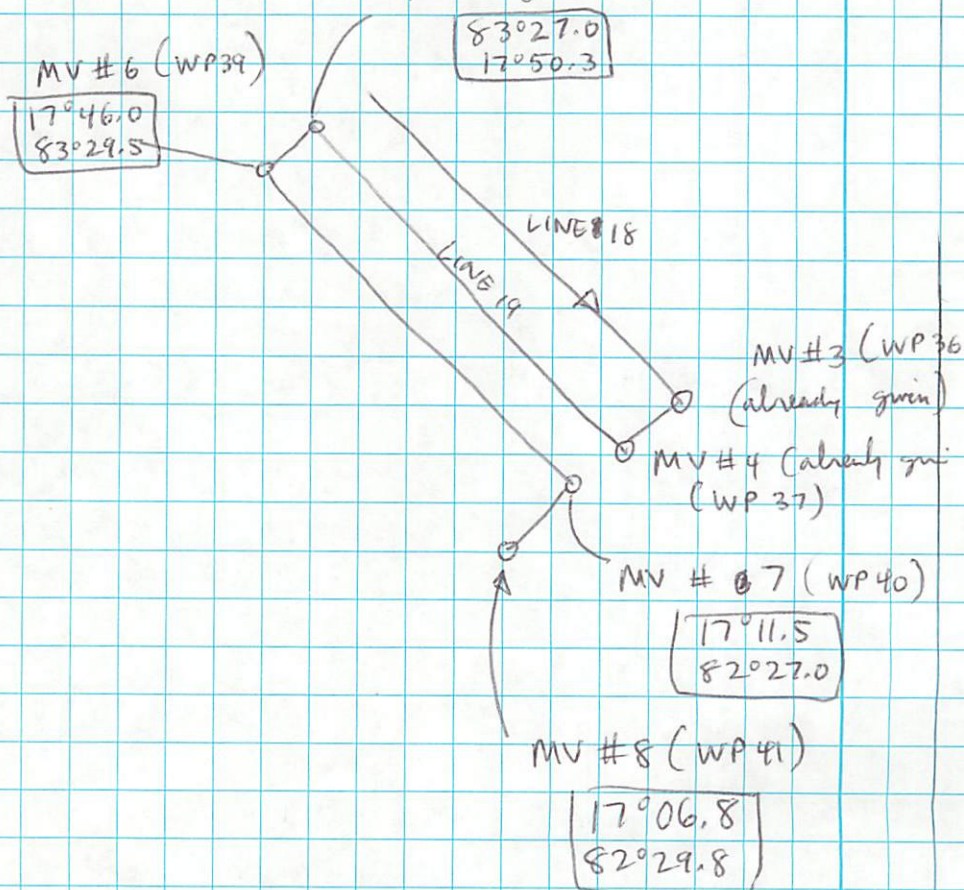 83°27.0
17°50.3
MV #6 (WP39)
17°46.0
83°29.5
LINE 18
LINE 19
MV #3 (WP 36
(already given)
MV #4 (already
(WP 37)
MV # 7 (WP 40)
17°11.5
82°27.0
MV #8 (WP 41)
17°06.8
82°29.8